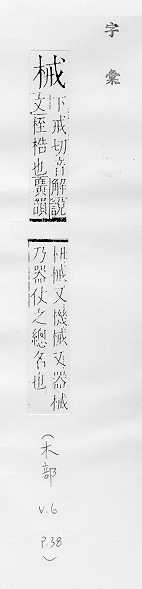 字彙
械
下戒切音解說
文桎梏也廣韻
杻械又機械又器械
乃器仗之總名也
(木部
v.6
p.38)